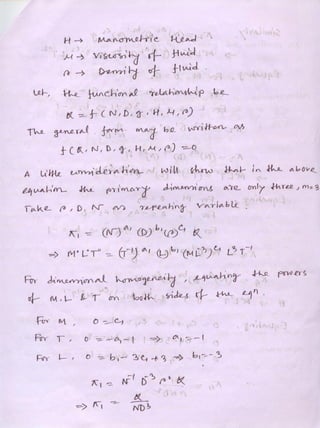 H → Manometric Head
μ → Viscosity of fluid
ρ → Density of fluid.
Let, the functional relationship be
Q = f (N, D, g, H, μ, ρ)
The general form may be written as
f (Q, N, D, g, H, μ, ρ) = 0
A little consideration will show that in the above
equation the primary dimensions are only three, m=3
Take ρ, D, N as repeating variable.
π₁ = (N)^a₁ (D)^b₁ (ρ)^c₁ Q
⇒ M°L°T° = (T⁻¹)^a₁ (L)^b₁ (ML⁻³)^c₁ L³T⁻¹
For dimensional homogeneity, equating the powers
of M, L & T on both sides of the eqⁿ.
For M, 0 = c₁
For T, 0 = -a₁-1 ⇒ a₁ = -1
For L, 0 = b₁ - 3c₁ + 3 ⇒ b₁ = -3
π₁ = N⁻¹ D⁻³ ρ° Q
⇒ π₁ = Q / ND³